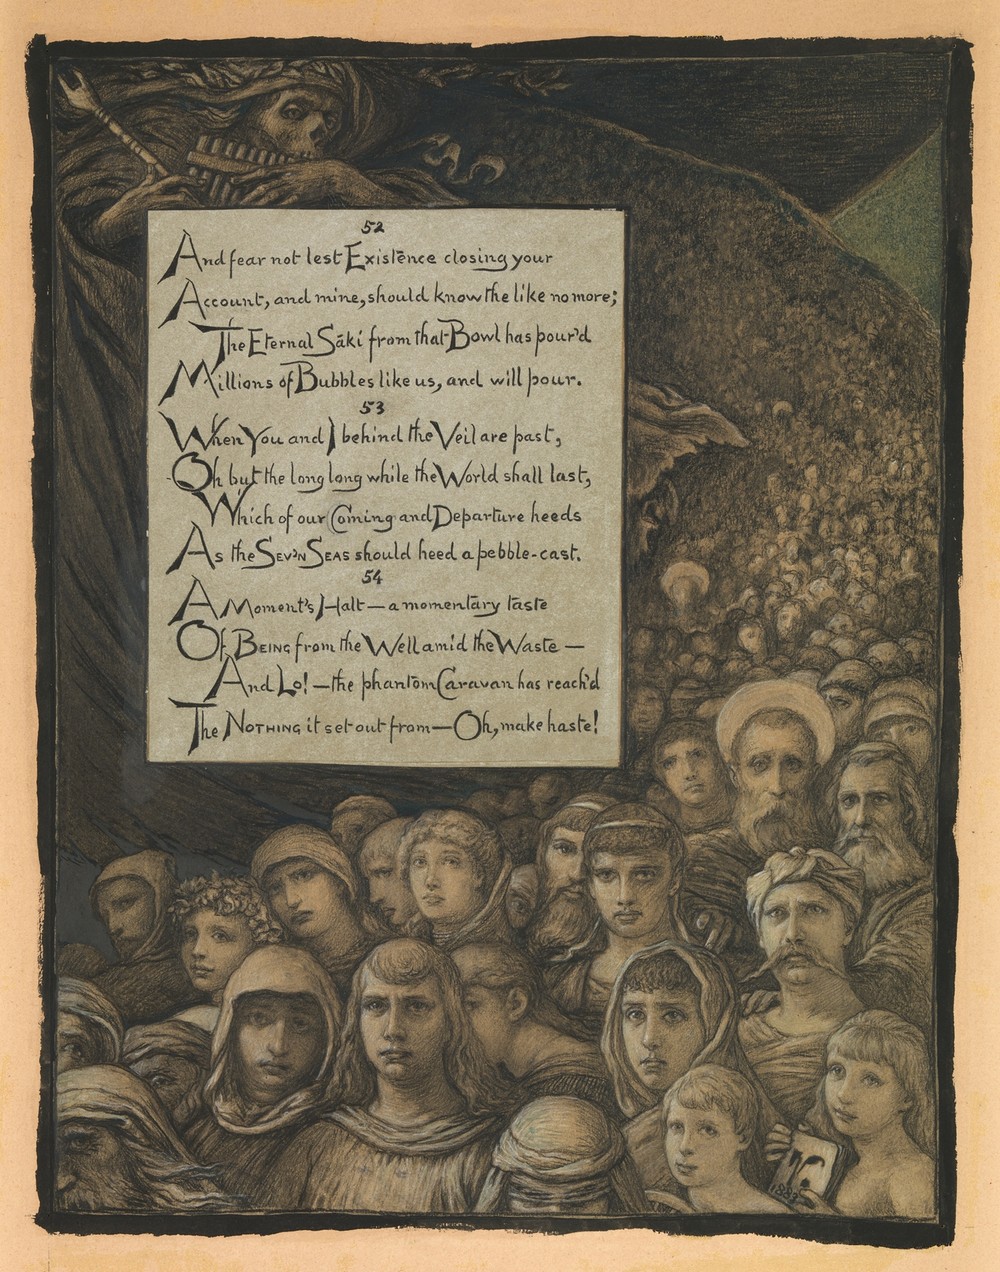 52
And fear not lest Existence closing your
Account, and mine, should know the like no more;
The Eternal Sáki from that Bowl has pour'd
Millions of Bubbles like us, and will pour.
53
When You and I behind the Veil are past,
Oh but the long long while the World shall last,
Which of our Coming and Departure heeds
As the SEV'N SEAS should heed a pebble-cast.
54
A Moment's Halt—a momentary taste
Of BEING from the Well amid the Waste—
And Lo!—the phantom Caravan has reach'd
The NOTHING it set out from—Oh, make haste!